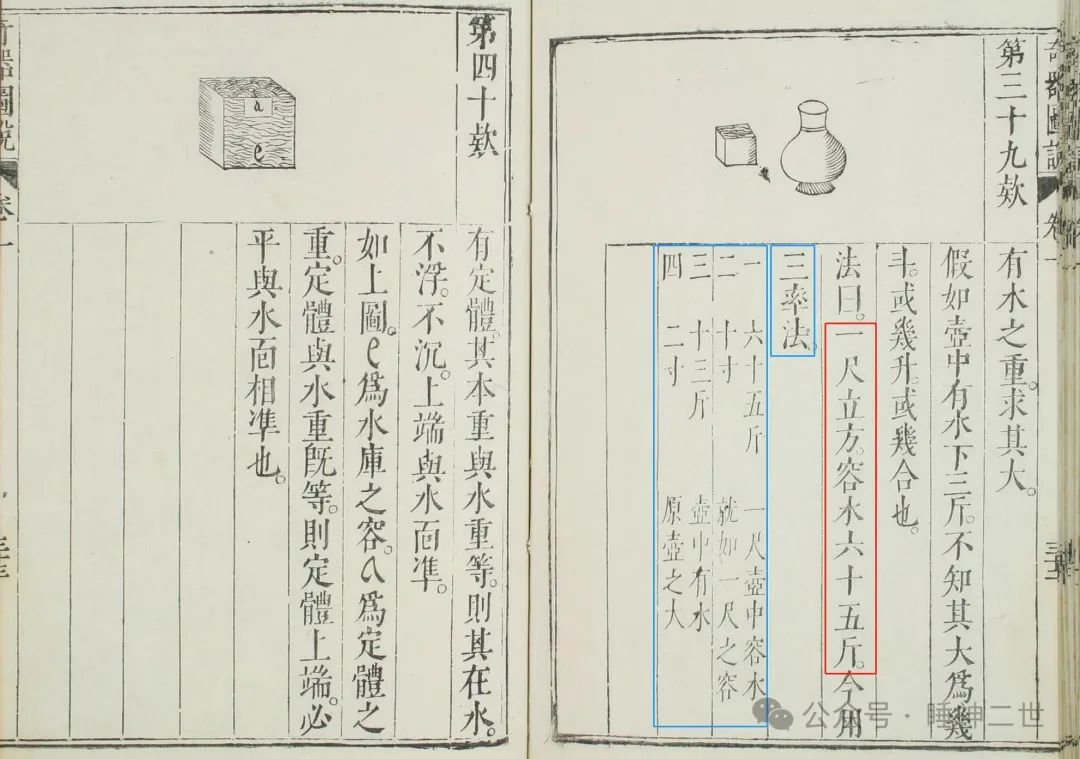 奇器圖說 卷一
第三十九欵
有水之重。求其大。
假如壺中有水下三斤。不知其大爲幾
斗。或幾升。或幾合也。
法曰。一尺立方。容水六十五斤。今用
三率法。
一 六十五斤 一尺壺中容水
二 十寸 就如一尺之容
三 十三斤 壺中有水
四 二寸 原壺之大
第四十欵
a
e
有定體。其本重與水重等。則其在水。
不浮。不沉。上端與水面準。
如上圖。e爲水庫之容。a爲定體之
重。定體與水重旣等。則定體上端。必
平與水面相準也。
奇器圖說 卷一
公众号·睡神二世